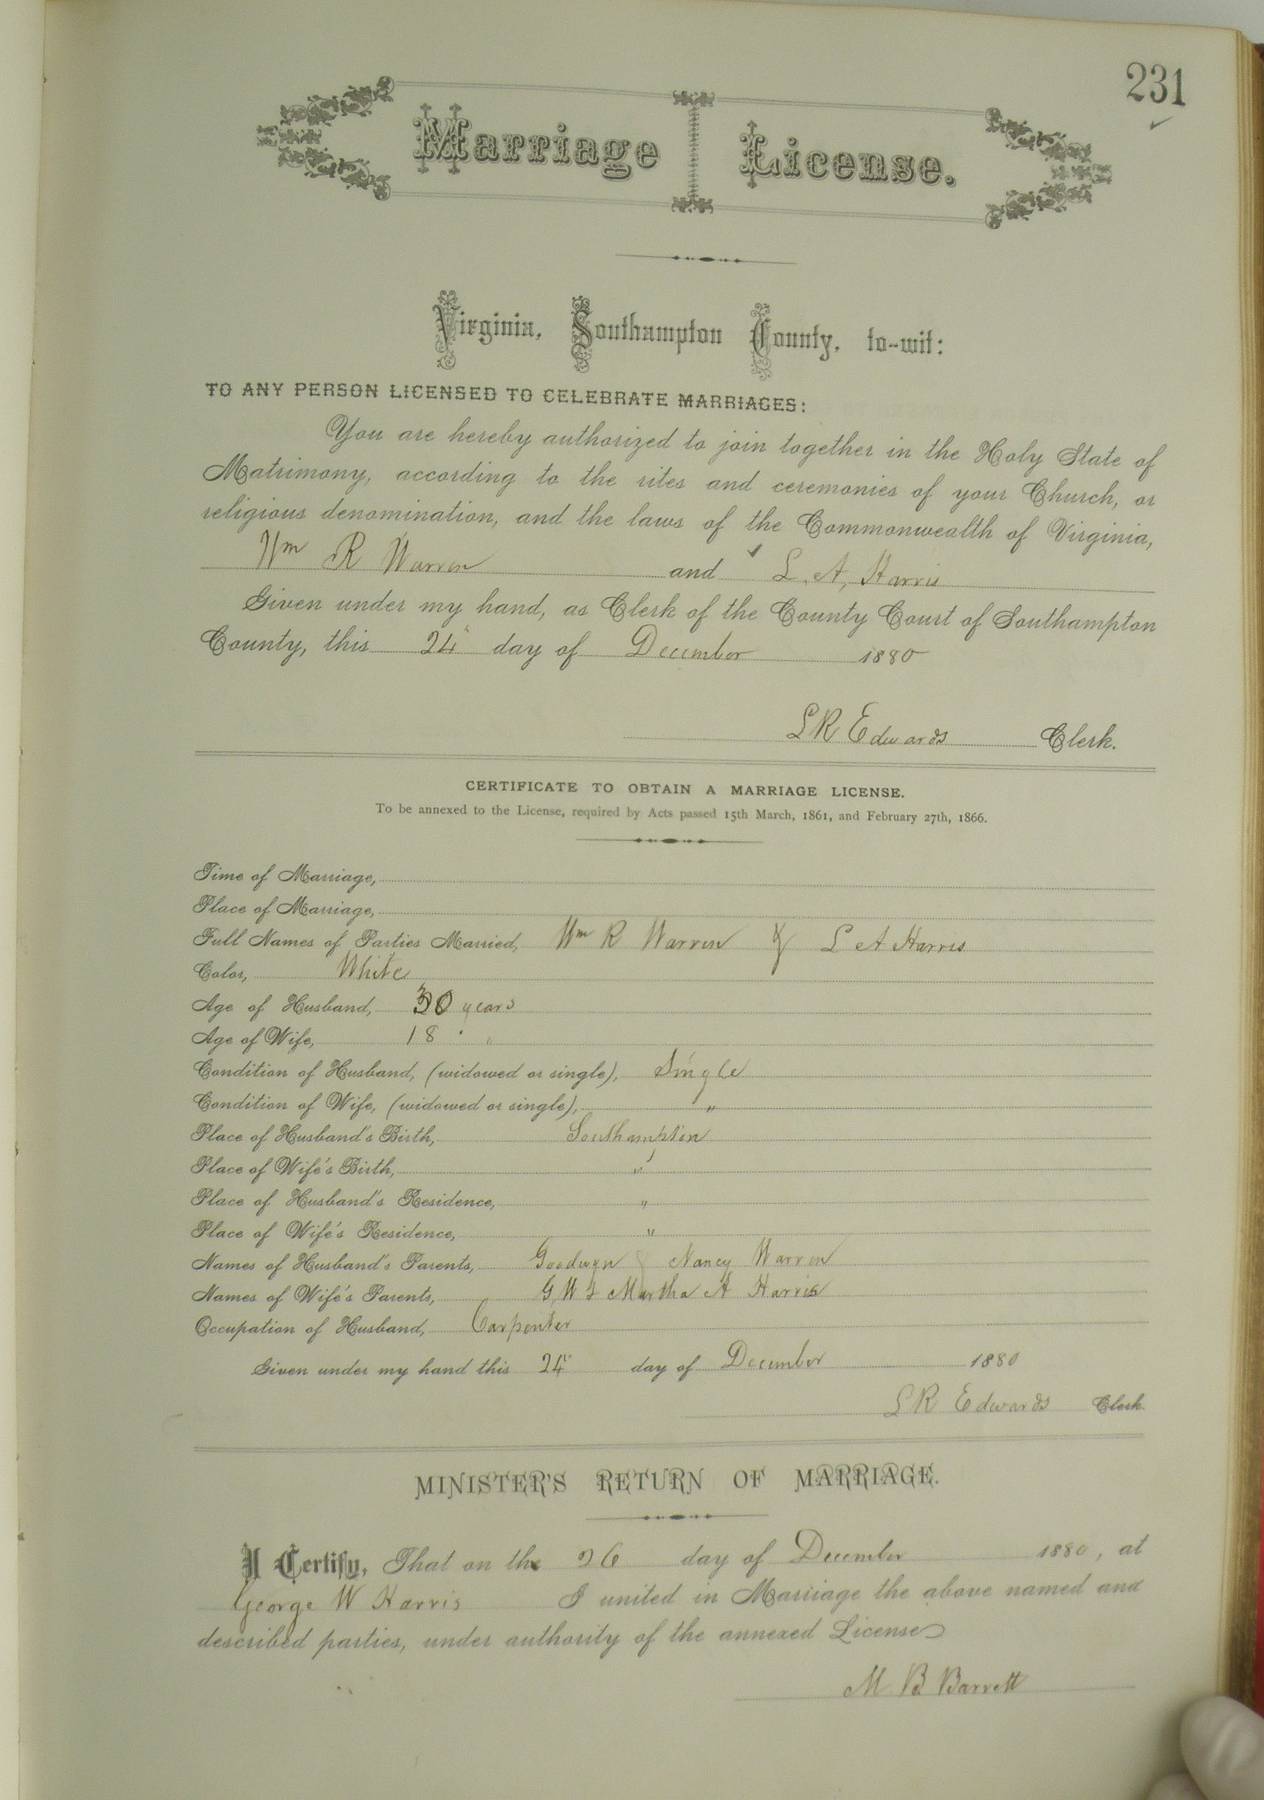 231
Marriage License.
Virginia, Southampton County, to-wit:
TO ANY PERSON LICENSED TO CELEBRATE MARRIAGES:
You are hereby authorized to join together in the Holy State of
Matrimony, according to the rites and ceremonies of your Church, or
religious denomination, and the laws of the Commonwealth of Virginia,
Wm R Warren and L. A. Harris
Given under my hand, as Clerk of the County Court of Southampton
County, this 24" day of December 1880
L R Edwards Clerk.
CERTIFICATE TO OBTAIN A MARRIAGE LICENSE.
To be annexed to the License, required by Acts passed 15th March, 1861, and February 27th, 1866.
Time of Marriage,
Place of Marriage,
Full Names of Parties Married, Wm R Warren & L A Harris
Color, White
Age of Husband, 30 years
Age of Wife, 18 "
Condition of Husband, (widowed or single), Single
Condition of Wife, (widowed or single), "
Place of Husband's Birth, Southampton
Place of Wife's Birth, "
Place of Husband's Residence, "
Place of Wife's Residence, "
Names of Husband's Parents, Goodwyn & Nancy Warren
Names of Wife's Parents, G. W & Martha A Harris
Occupation of Husband, Carpenter
Given under my hand this 24" day of December 1880
L R Edwards Clerk.
MINISTER'S RETURN OF MARRIAGE.
I Certify, That on the 26 day of December 1880, at
George W Harris I united in Marriage the above named and
described parties, under authority of the annexed License
M. B. Barrett